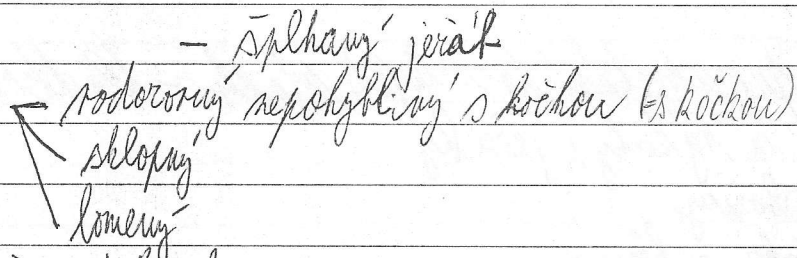 - šplhavý jeřáb
vodorovný nepohyblivý s kočkou (-s kočkou)
sklopný
lomený